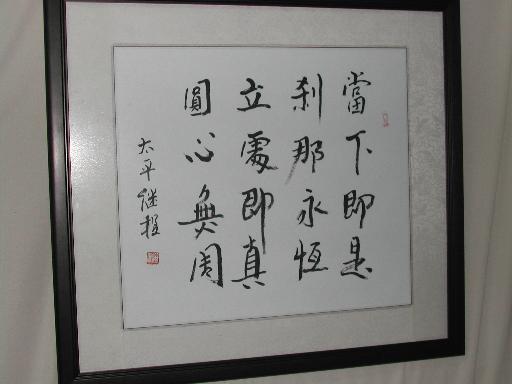 當下即是
刹那永恆
立處即真
圓心無周
太平继程